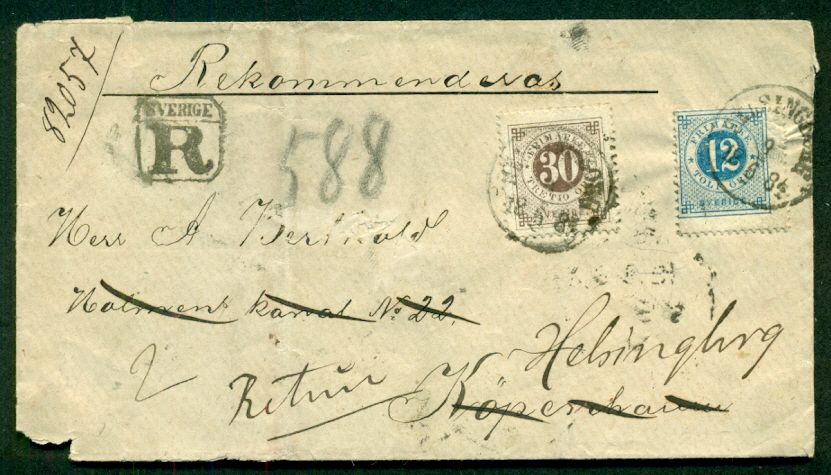 82057
Rekommenderas
SVERIGE
R
588
FRIMÄRKE
30
TRETIO ÖRE
SVERIGE
FRIMÄRKE
12
TOLF ÖRE
SVERIGE
Herr A Berthold
Holmens kanal No 22.
Helsingborg
Retur Köpenhamn